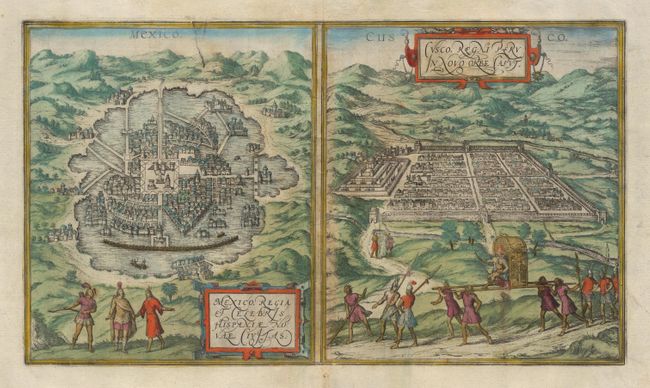 MEXICO.
MEXICO, REGIA
ET CELEBRIS
HISPANIÆ NO
VAE CIVITAS.
CUS CO.
CUSCO, REGNI PERU
IN NOVO ORBE CAPUT.